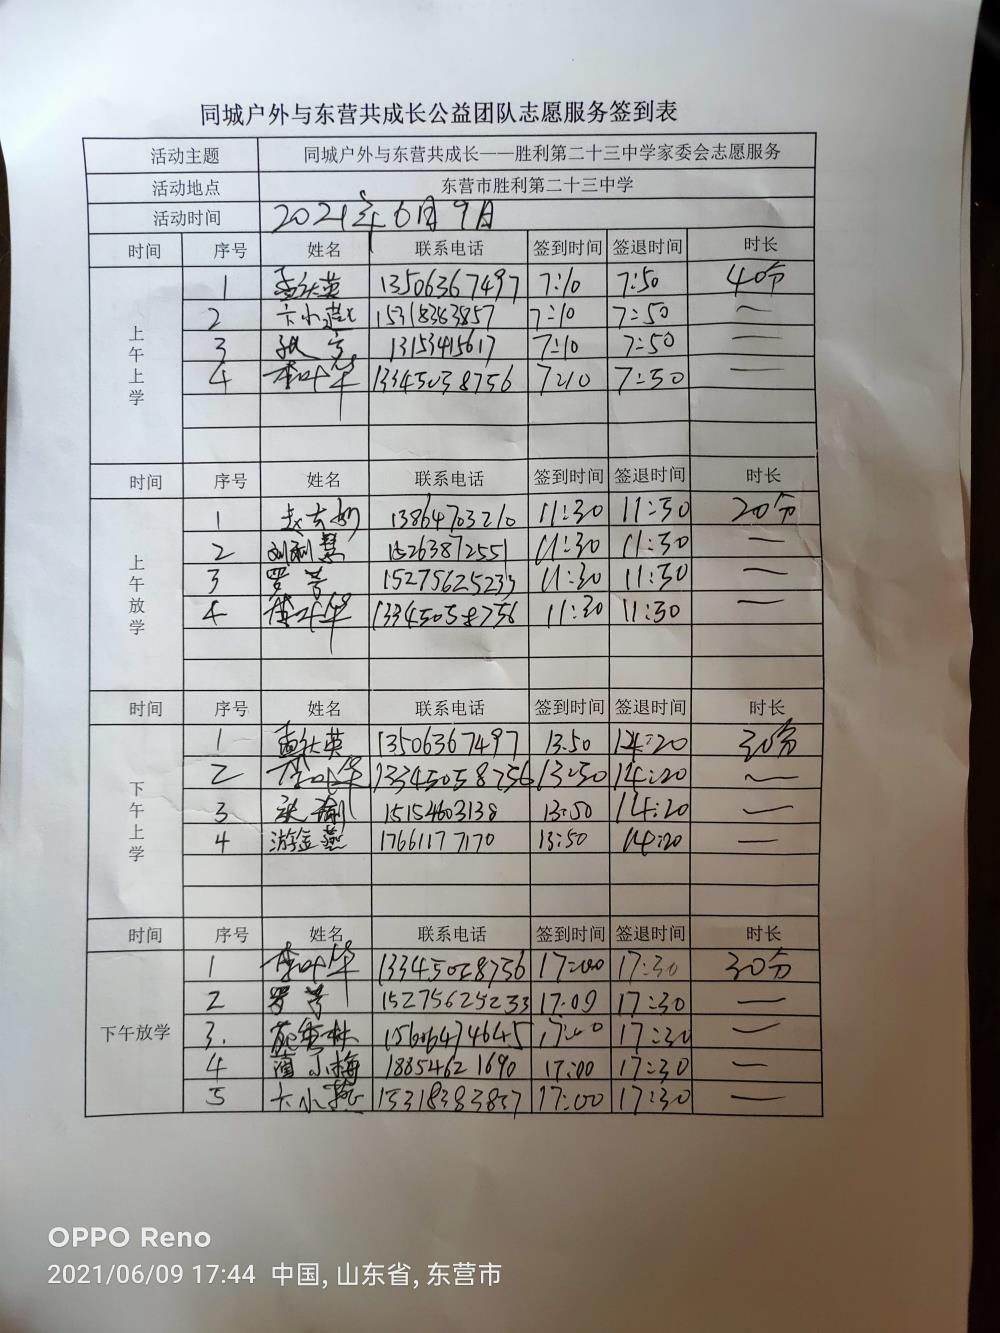 同城户外与东营共成长公益团队志愿服务签到表
活动主题 同城户外与东营共成长——胜利第二十三中学家委会志愿服务
活动地点 东营市胜利第二十三中学
活动时间 2021年6月9日
时间 序号 姓名 联系电话 签到时间 签退时间 时长
上午上学
1 13506367497 7:10 7:50 40分
2 卞小燕 15318383857 7:10 7:50 —
3 13153415617 7:10 7:50 —
4 李叶华 13345058756 7:10 7:50 —
时间 序号 姓名 联系电话 签到时间 签退时间 时长
上午放学
1 13864703210 11:30 11:50 20分
2 刘利慧 15263872551 11:30 11:50 —
3 罗芳 15275625233 11:30 11:50 —
4 李叶华 13345058756 11:30 11:50 —
时间 序号 姓名 联系电话 签到时间 签退时间 时长
下午上学
1 13506367497 13:50 14:20 30分
2 李叶华 13345058756 13:50 14:20 —
3 15154603138 13:50 14:20 —
4 游金燕 17661177170 13:50 14:20 —
时间 序号 姓名 联系电话 签到时间 签退时间 时长
下午放学
1 李叶华 13345058756 17:00 17:30 30分
2 罗芳 15275625233 17:00 17:30 —
3. 15606474645 17:00 17:30 —
4 小梅 18854621690 17:00 17:30 —
5 卞小燕 15318383857 17:00 17:30 —
OPPO Reno
2021/06/09 17:44 中国, 山东省, 东营市